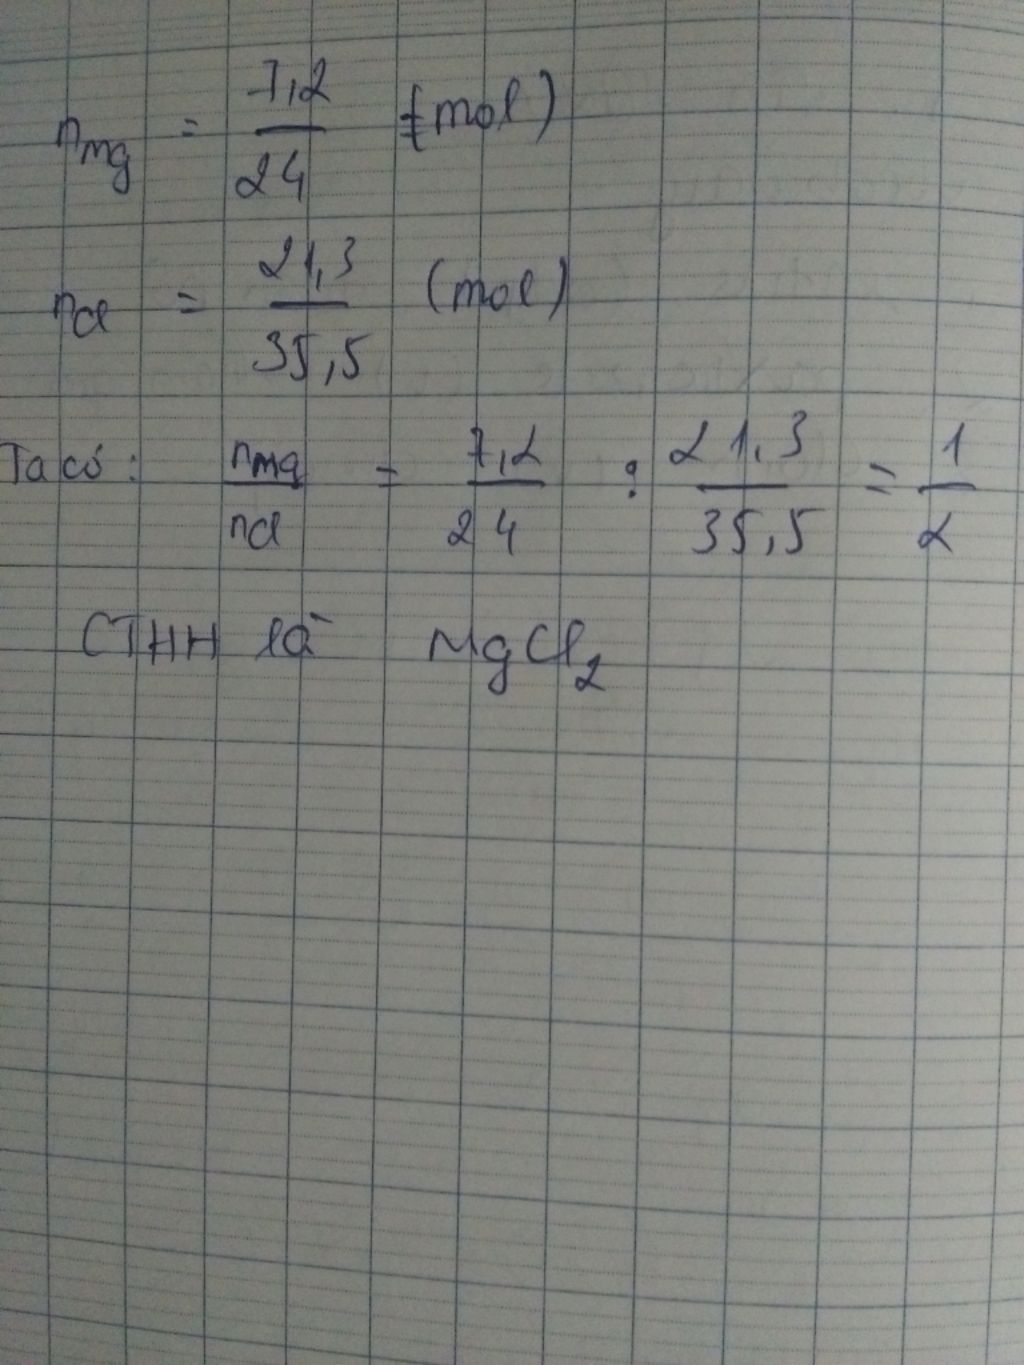 nmg = 7,2/24 (mol)
nCl = 21,3/35,5 (mol)
Ta có: nmg/nCl = 7,2/24 : 21,3/35,5 = 1/2
CTHH là MgCl2